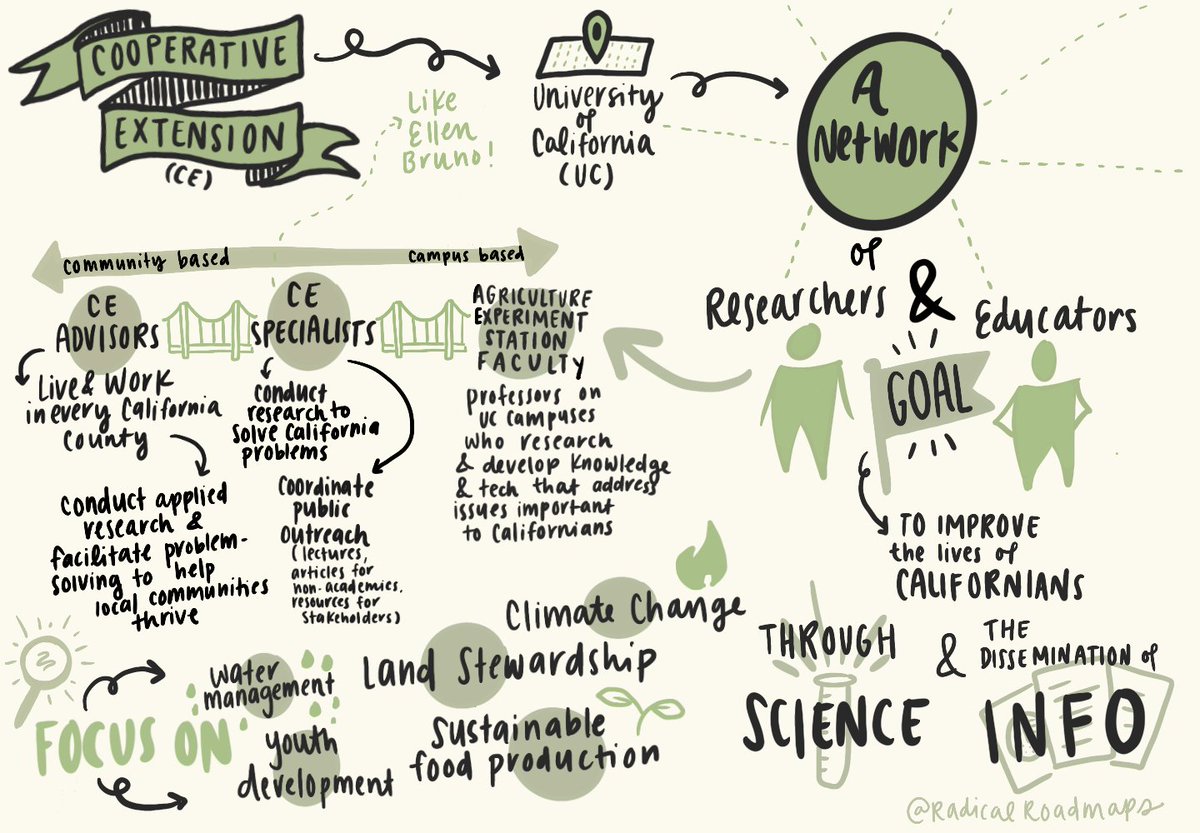 COOPERATIVE
EXTENSION
(CE)
Like
Ellen
Bruno!
University
of
California
(UC)
A
Network
of
Researchers & Educators
GOAL
TO IMPROVE
the lives of
CALIFORNIANS
THROUGH
SCIENCE
& THE
DISSEMINATION of
INFO
community based
campus based
CE
ADVISORS
Live & Work
in every California
county
conduct applied
research &
facilitate problem-
solving to help
local communities
thrive
CE
SPECIALISTS
conduct
research to
solve California
problems
coordinate
public
outreach
(lectures,
articles for
non-academics,
resources for
stakeholders)
AGRICULTURE
EXPERIMENT
STATION
FACULTY
professors on
UC campuses
who research
& develop knowledge
& tech that address
issues important
to Californians
FOCUS ON
water
management
youth
development
Land Stewardship
Climate Change
Sustainable
food production
@Radical Roadmaps